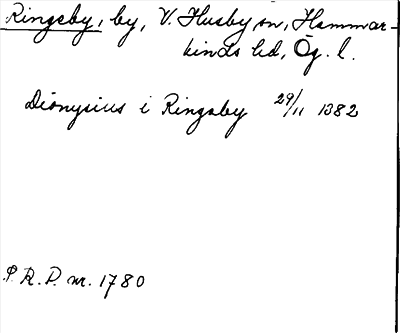 Ringsby, by, V. Husby sn, Hammar-
kinds hd, Ög. l.
Dionysius i Ringsby 29/11 1382
P.R.P. nr. 1780